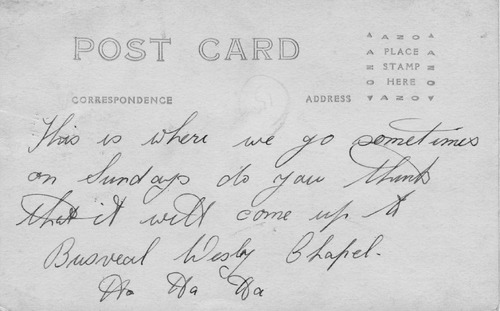 POST CARD
AZO
PLACE
STAMP
HERE
AZO
CORRESPONDENCE ADDRESS
This is where we go sometimes
on Sundays do you think
that it will come up to
Busveal Wesley Chapel.
Ha Ha Ha